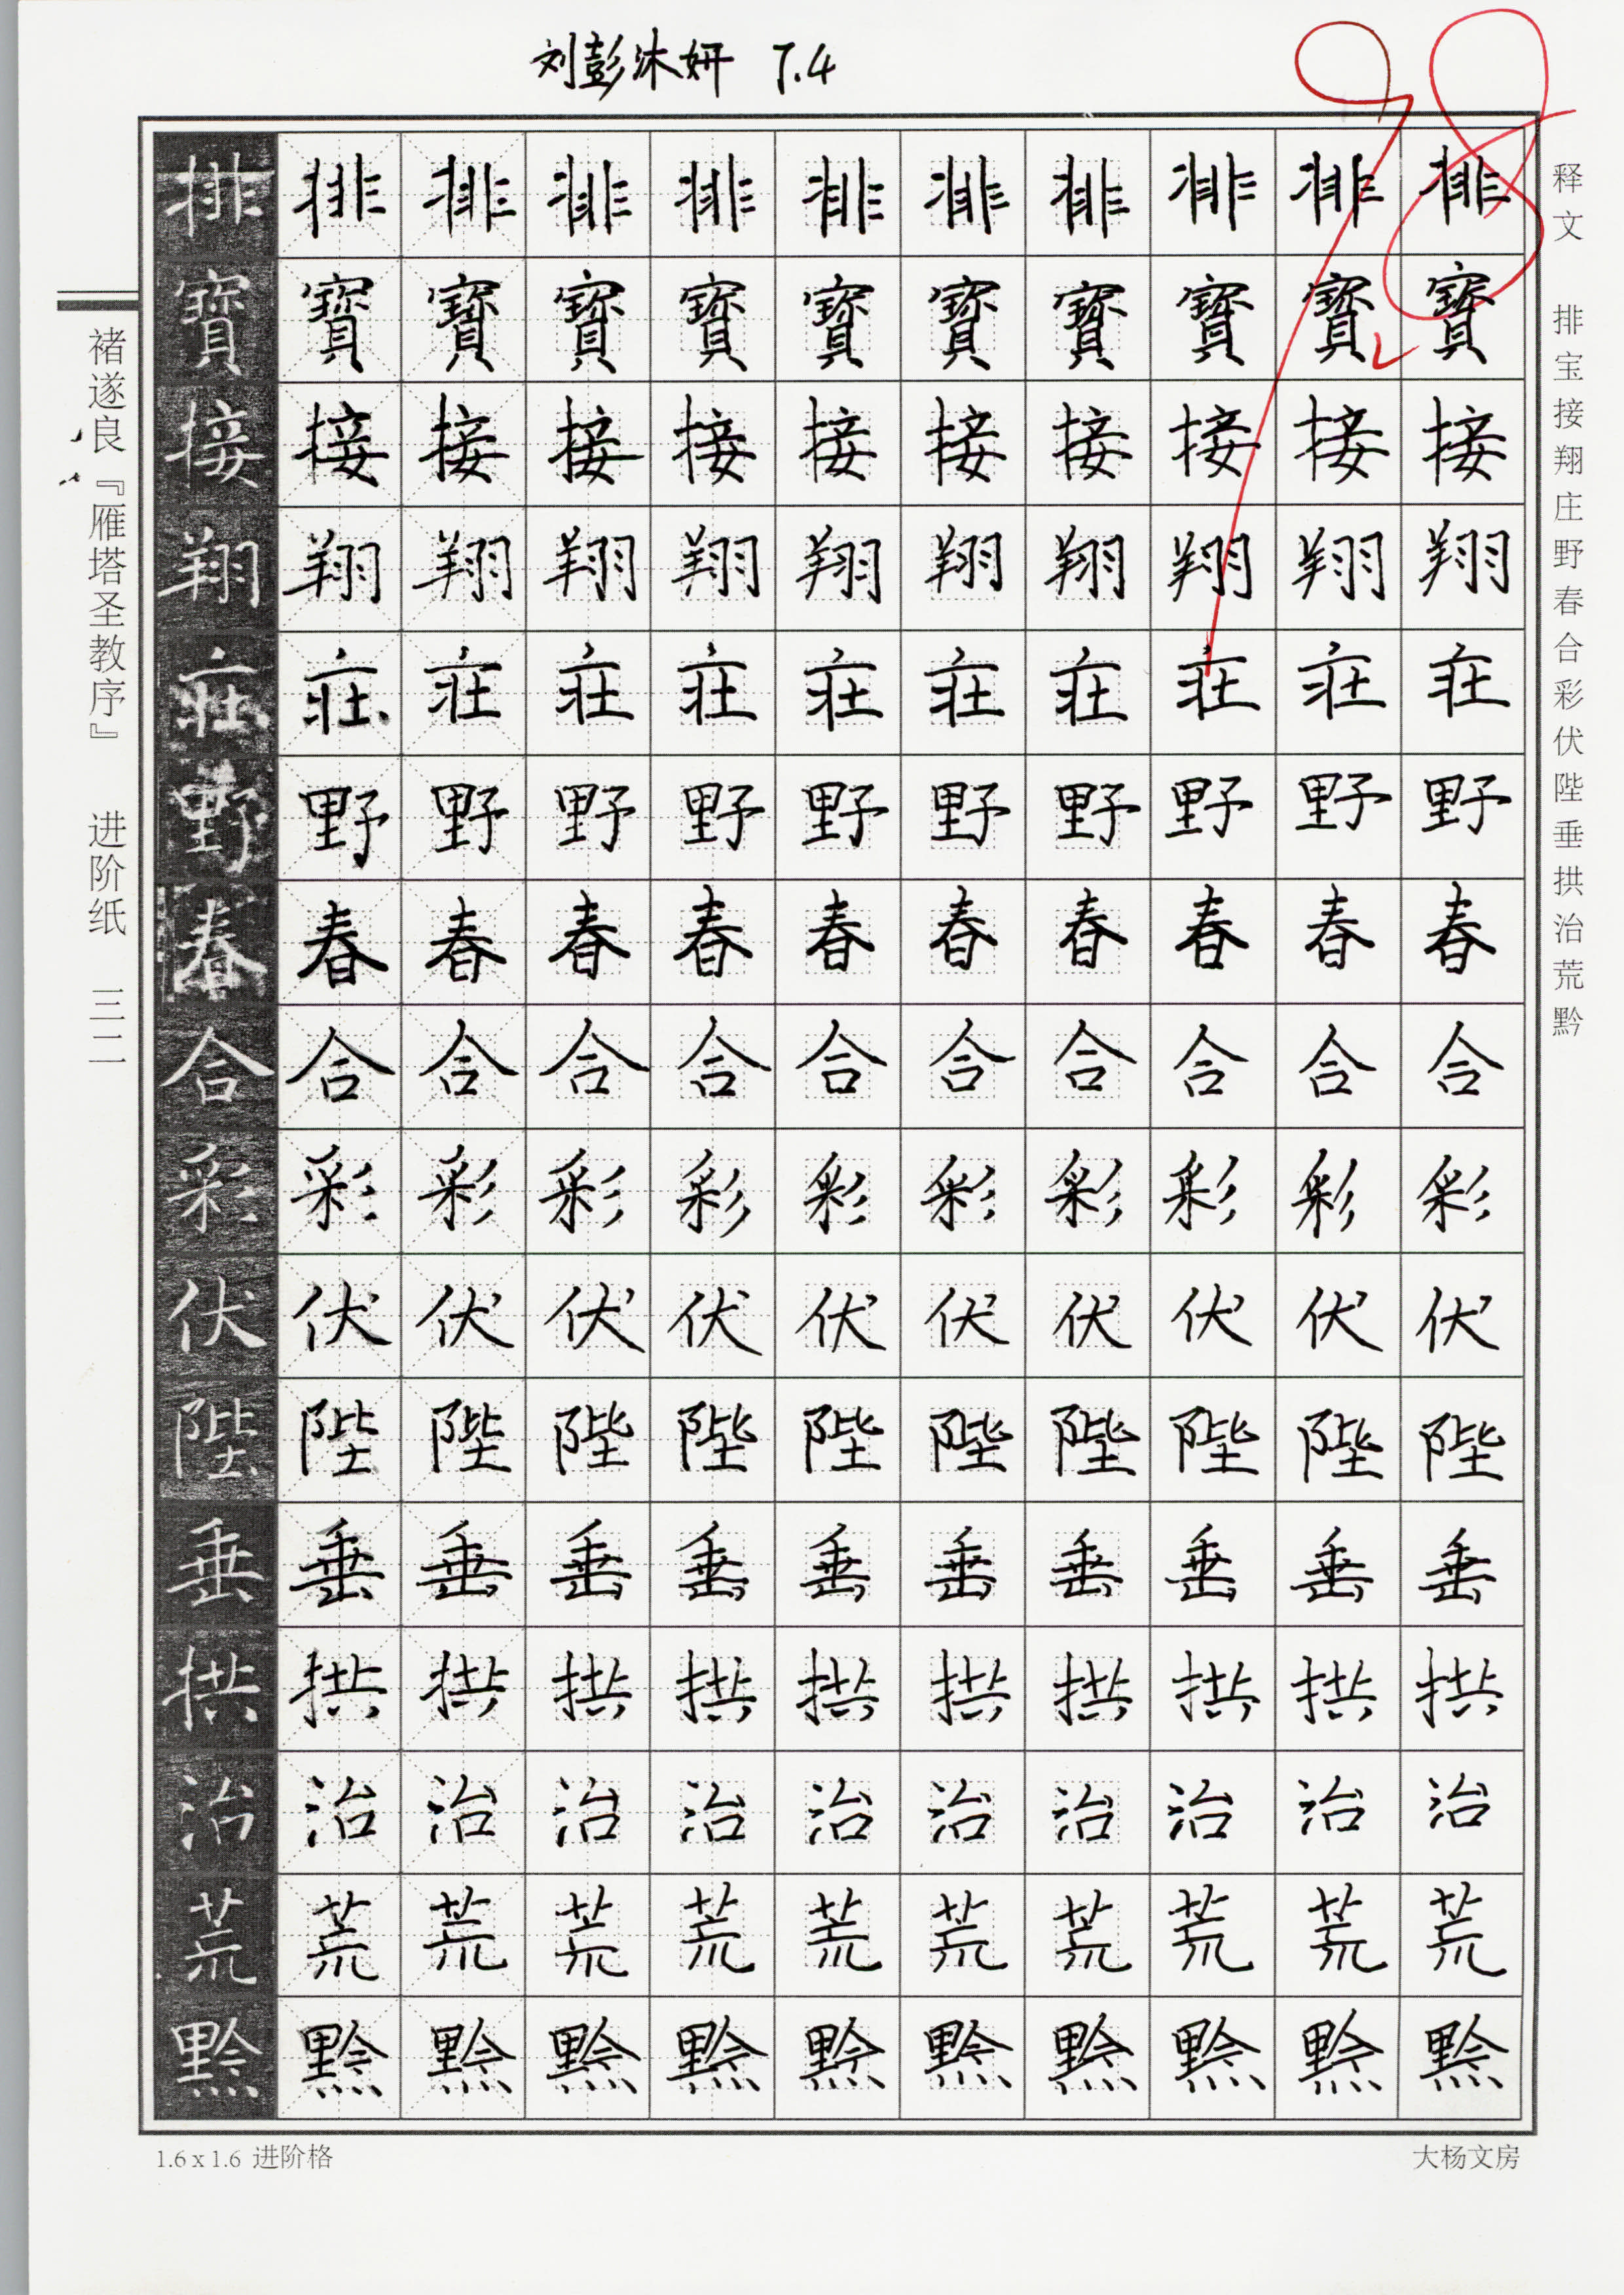 刘彭沐妍 7.4
98
排排排排排排排排排排排
寶寶寶寶寶寶寶寶寶寶寶
接接接接接接接接接接接
翔翔翔翔翔翔翔翔翔翔翔
庄庄庄庄庄庄庄庄庄庄庄
野野野野野野野野野野野
春春春春春春春春春春春
合合合合合合合合合合合
彩彩彩彩彩彩彩彩彩彩彩
伏伏伏伏伏伏伏伏伏伏伏
陛陛陛陛陛陛陛陛陛陛陛
垂垂垂垂垂垂垂垂垂垂垂
拱拱拱拱拱拱拱拱拱拱拱
治治治治治治治治治治治
荒荒荒荒荒荒荒荒荒荒荒
黔黔黔黔黔黔黔黔黔黔黔
释文 排宝接翔庄野春合彩伏陛垂拱治荒黔
褚遂良『雁塔圣教序』 进阶纸 三二
1.6 x 1.6 进阶格
大杨文房